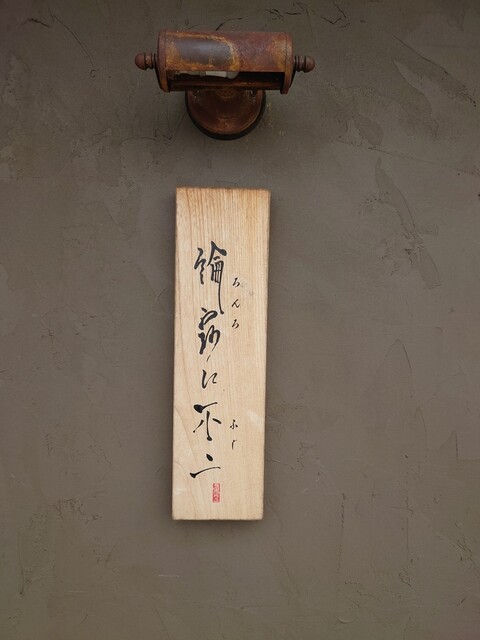 論露に不二
ろんろ
ふじ